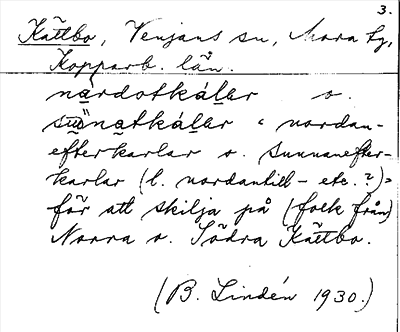 3.
Kättbo, Venjans sn, Mora hg,
Kopparb. län.
nårdotkálar o.
natkálar " nordan-
efterkarlar o. sunnanefter-
karlar (l. nordantill- etc. ?)=
för att skilja på (folk från)
Norra o. Södra Kättbo.
(B. Lindén 1930.)